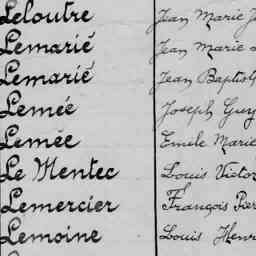 Leloutre Jean Marie J
Lemarié Jean Marie
Lemarié Jean Baptist
Lemée Joseph Guy
Lemée Emile Marie
Le Mentec Louis Victor
Lemercier François Pier
Lemoine Louis Henr